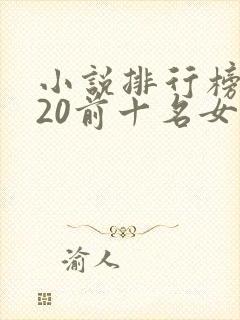 小说排行榜
20前十名女
渝人